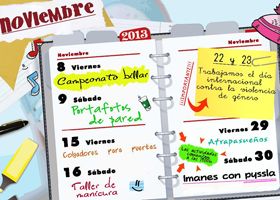 noviembre
2013
Noviembre
8 Viernes
Campeonato billar
9 Sábado
Portafotos
de pared
15 Viernes
Colgadores para puertas
16 Sábado
Taller de
manicura
Noviembre
¡¡IMPORTANTE!!
22 y 23
Trabajamos el día
internacional
contra la violencia
de género
Viernes 29
Atrapasueños
Las actividades
Sábado 30
Imanes con pyssla